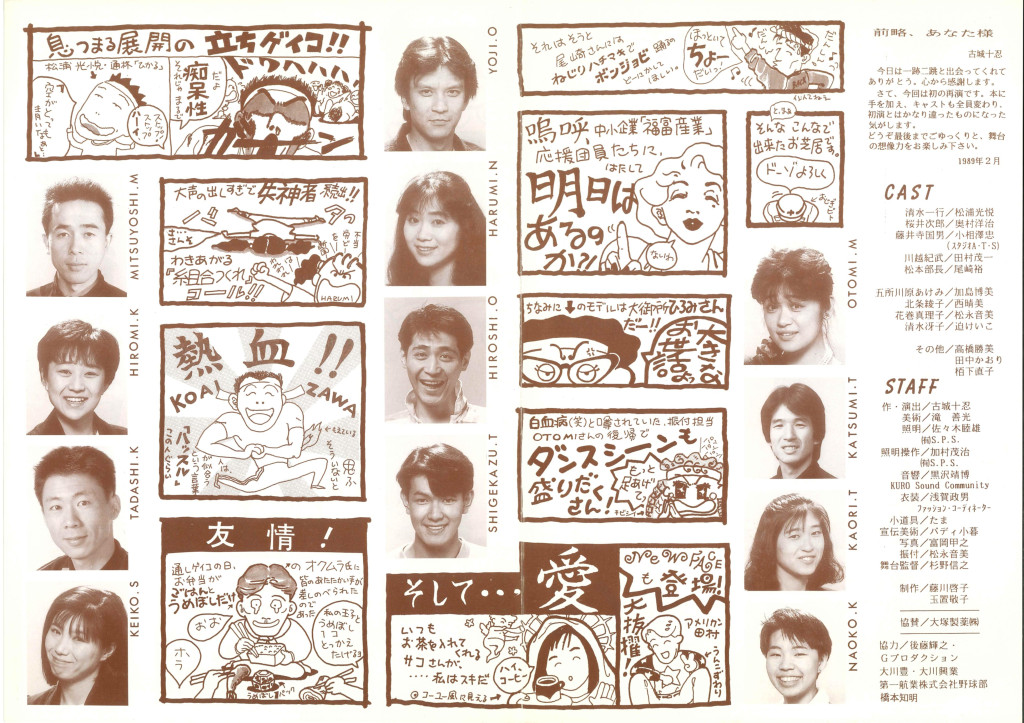 息つまる展開の 立ちゲイコ!!
松浦光悦・通称「ひかる」
だよ
それじゃまるで
痴呆性
ハーイ、
ストップ
ストップ
YOJI.O
MITSUYOSHI.M
大声の出しすぎで 失神者 続出!!
わきあがる
『組合つくれ』
コール!!
HARUMI
HARUMI.N
HIROMI.K
熱血!!
KOAI ZAWA
「ハッスル」
という言葉
が似合う
人は、
そういないと
思ふ
HIROSHI.O
TADASHI.K
SHIGEKAZU.T
友情!
通しゲイコの日、
お弁当が
ごはんと
うめぼしだけ
のオクムラ氏に
皆のあたたかい手が
差しのべられた
ので
あった
私の玉子と
うめぼし
1コ
とっかえ
たげるョ
ホラ
KEIKO.S
それはそうと
尾崎さんには
ねじりハチマキで
ボンジョビ 踊る
のだけは
ほしい。
ちょー
だいっ
嗚呼 中小企業「福富産業」
応援団員たちに、
はたして
明日は
あるの
か?!
ないわ
とゆう
そんな こんなで
出来たお芝居です。
ドーゾよろしく
OTOMI.M
ちなみに↓のモデルは大御所ひろみさん
だー!!
大きな
お世話よっ
白血病(笑)と噂されていた、振付担当
OTOMIさんの復帰で
ダンスシーンも
盛りだく
さん!
もっと
足あげて!
KATSUMI.T
KAORI.T
そして・・・愛
いつも
お茶を入れて
くれる
サコさんが、
・・・・私はスキだ
ハイ、
コーヒー
NEW FACE
も登場!
大抜擢!
アメリカン
田村
うんこすわり
NAOKO.K
前略、あなた様
古城十忍
今日は一跡二跳と出会ってくれて
ありがとう。心から感謝します。
さて、今回は初の再演です。本に
手を加え、キャストも全員変わり、
初演とはかなり違ったものになった
気がします。
どうぞ最後までごゆっくりと、舞台
の想像力をお楽しみ下さい。
1989年2月
CAST
清水一行／松浦光悦
桜井次郎／奥村洋治
藤井寺国男／小相澤忠
（ｽﾀｼﾞｵﾙ･T･S）
川越紀武／田村茂一
松本部長／尾崎裕
五所川原あけみ／加島博美
北条綾子／西晴美
花巻真理子／松永音美
清水冴子／迫けいこ
その他／高橋勝美
田中かおり
栢下直子
STAFF
作・演出／古城十忍
美術／滝 善光
照明／佐々木睦雄
㈲S.P.S.
照明操作／加村茂治
㈲S.P.S.
音響／黒沢靖博
KURO Sound Community
衣装／浅賀政男
ﾌｧｯｼｮﾝ･ｺｰﾃﾞｨﾈｰﾀｰ
小道具／たま
宣伝美術／バディ小暮
写真／富岡甲之
振付／松永音美
舞台監督／杉野信之
制作／藤川啓子
玉置敬子
協賛／大塚製薬㈱
協力／後藤輝之・
Gプロダクション
大川豊・大川興業
第一航業株式会社野球部
橋本知明